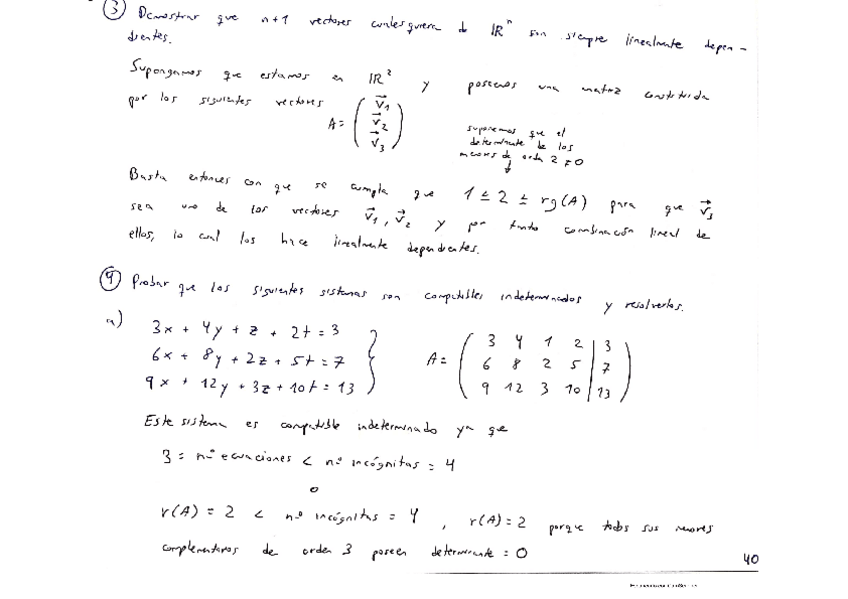 ③ Demostrar que n+1 vectores cualesquiera de ℝⁿ son siempre linealmente depen-
dientes.
Supongamos que estamos en ℝ² y poseemos una matriz constituida
por los siguientes vectores A = (v⃗₁ v⃗₂ v⃗₃)
suponemos que el
determinante de los
menores de orden 2 ≠ 0
Basta entonces con que se cumpla que 1 ≤ 2 ≤ rg(A) para que v⃗₃
sea uno de los vectores v⃗₁, v⃗₂ y por tanto combinación lineal de
ellos, lo cual los hace linealmente dependientes.
④ Probar que los siguientes sistemas son compatibles indeterminados y resolverlos.
a)
3x + 4y + z + 2t = 3
6x + 8y + 2z + 5t = 7
9x + 12y + 3z + 10t = 13
A =
3 4 1 2 | 3
6 8 2 5 | 7
9 12 3 10 | 13
Este sistema es compatible indeterminado ya que
3 = nº ecuaciones < nº incógnitas = 4
o
r(A) = 2 < nº incógnitas = 4 , r(A) = 2 porque todos sus menores
complementarios de orden 3 poseen determinante = 0
40